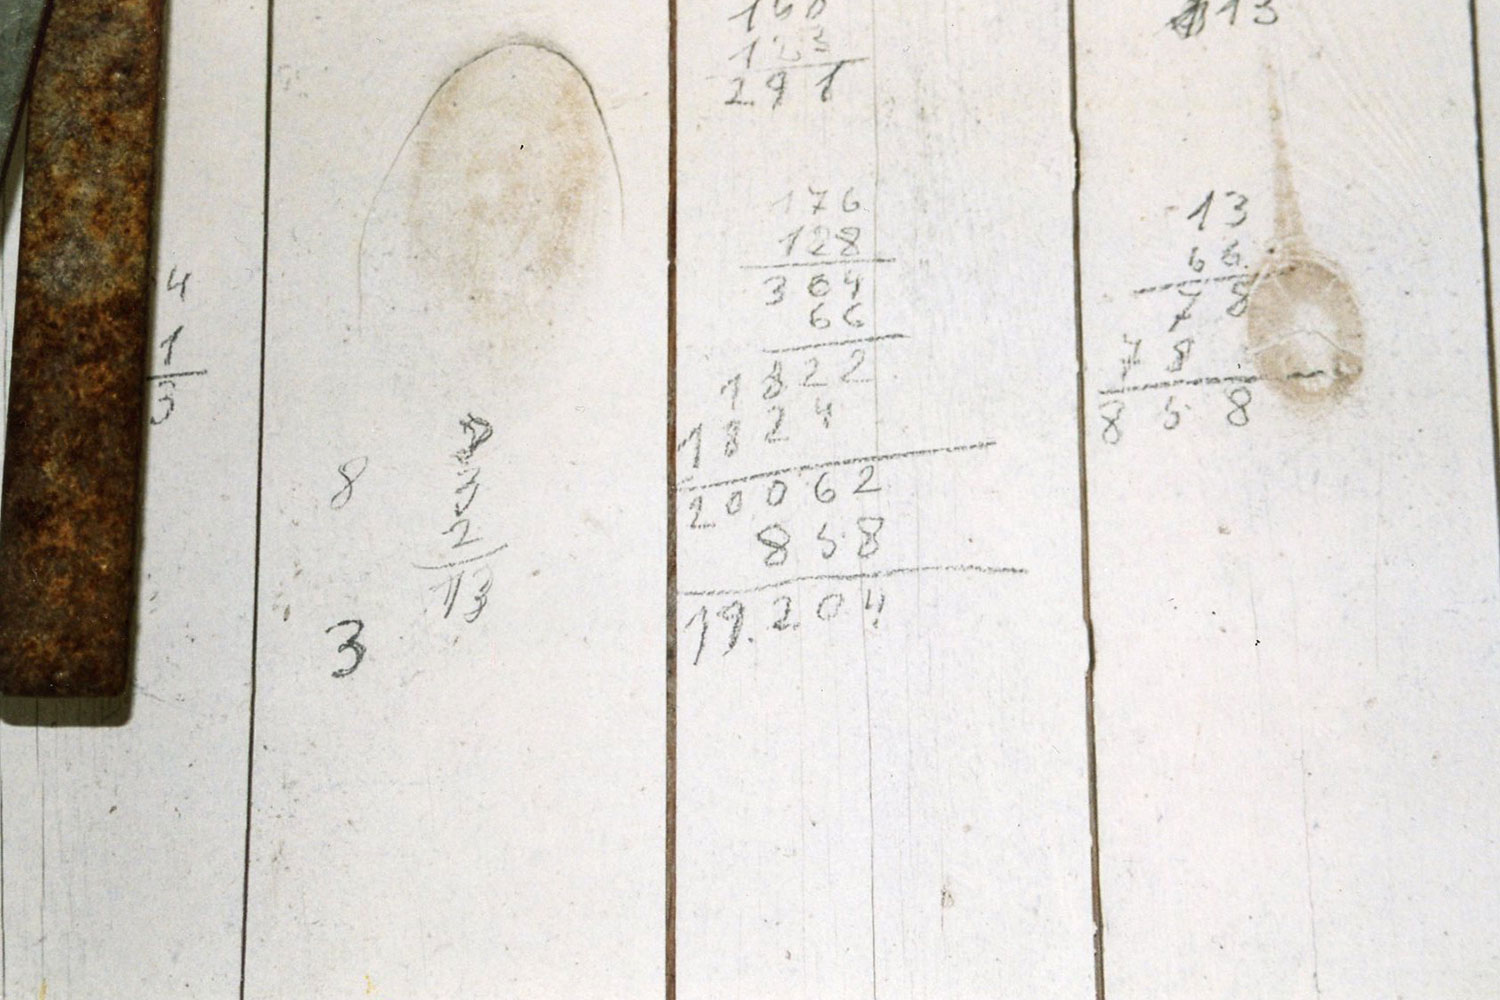 4
1
8
3
3
2
13
123
291
176
128
304
66
1822
1824
20062
858
19.204
13
13
66
78
78
858